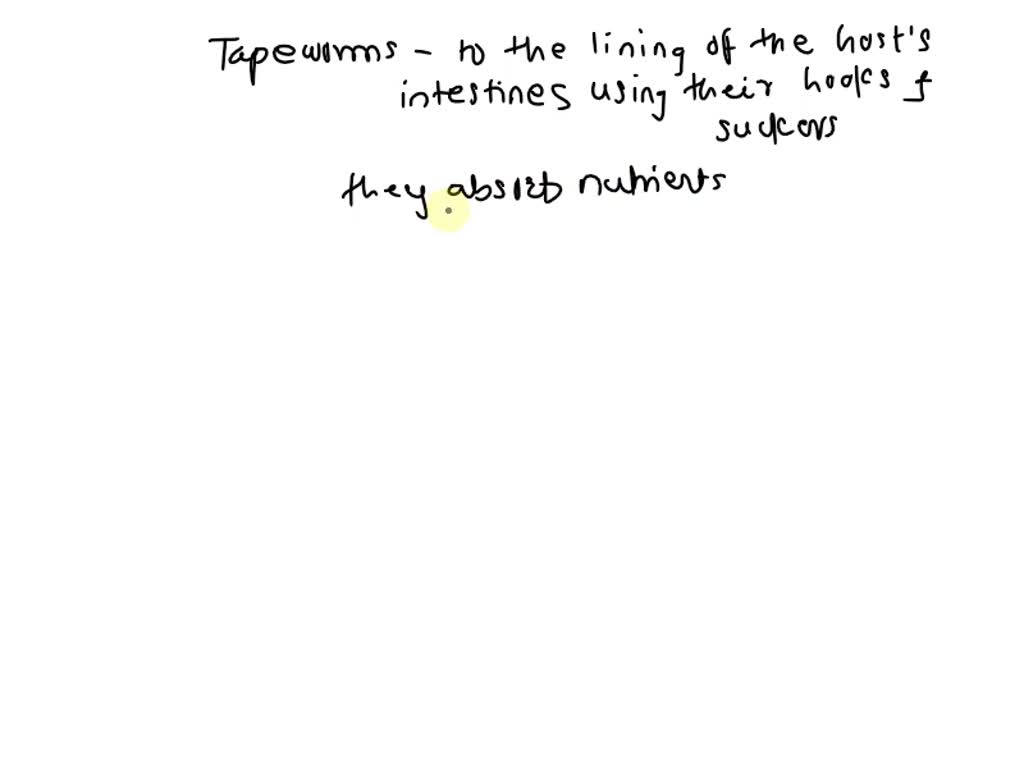 Tapeworms - to the lining of the host's
intestines using their hooks &
suckers
they absorb nutrients